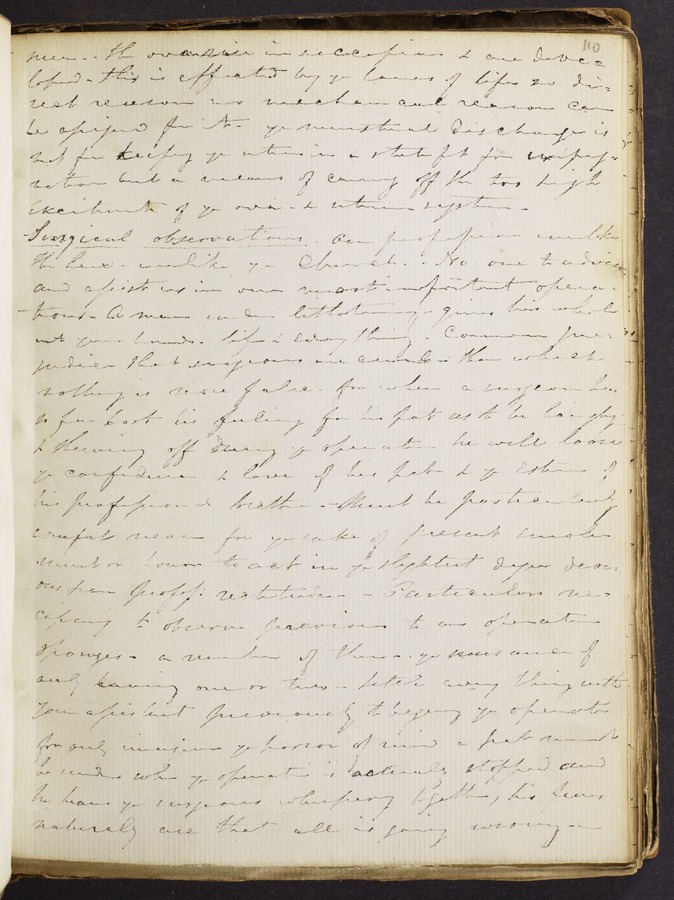 110
men.. the ovaries in succession & are deve=
loped - this is effected by ye laws of life no di=
rect reason no mechanical reason can
be assigned for it. ye menstrual discharge is
not for keeping ye uterus in a state fit for impreg=
nation but a means of carrying off the too high
excitement of ye ova. & uterine system -
Surgical observations. our profession unlike
the law. unlike ye Church. No one to advise
and assist us in our most important opera=
tions - A man under lithotomy - gives his whole
into your hands. life & every thing. Common pre=
judice that surgeons are cruel - than which
nothing is more false. for when a surgeon has
so far lost his feeling for his pat as to be
& showing off during ye operat he will loose
ye confidence & love of his pats & ye esteem of
his professional brethren - Must be particularly
careful never for ye sake of present
or to act in ye slightest degree
from proff: rectitude - Particulars ne=
cessary to observe previous to an operation
sponges - a number of them - ye nuisance of
only having one or two - settle every thing with
your assistant previously to begin ye operation
for only imagine ye horror of mind a patt must
be under when ye operation is actually stopped and
he hears ye surgeons whispering together, his fears
naturally are that all is going wrong -